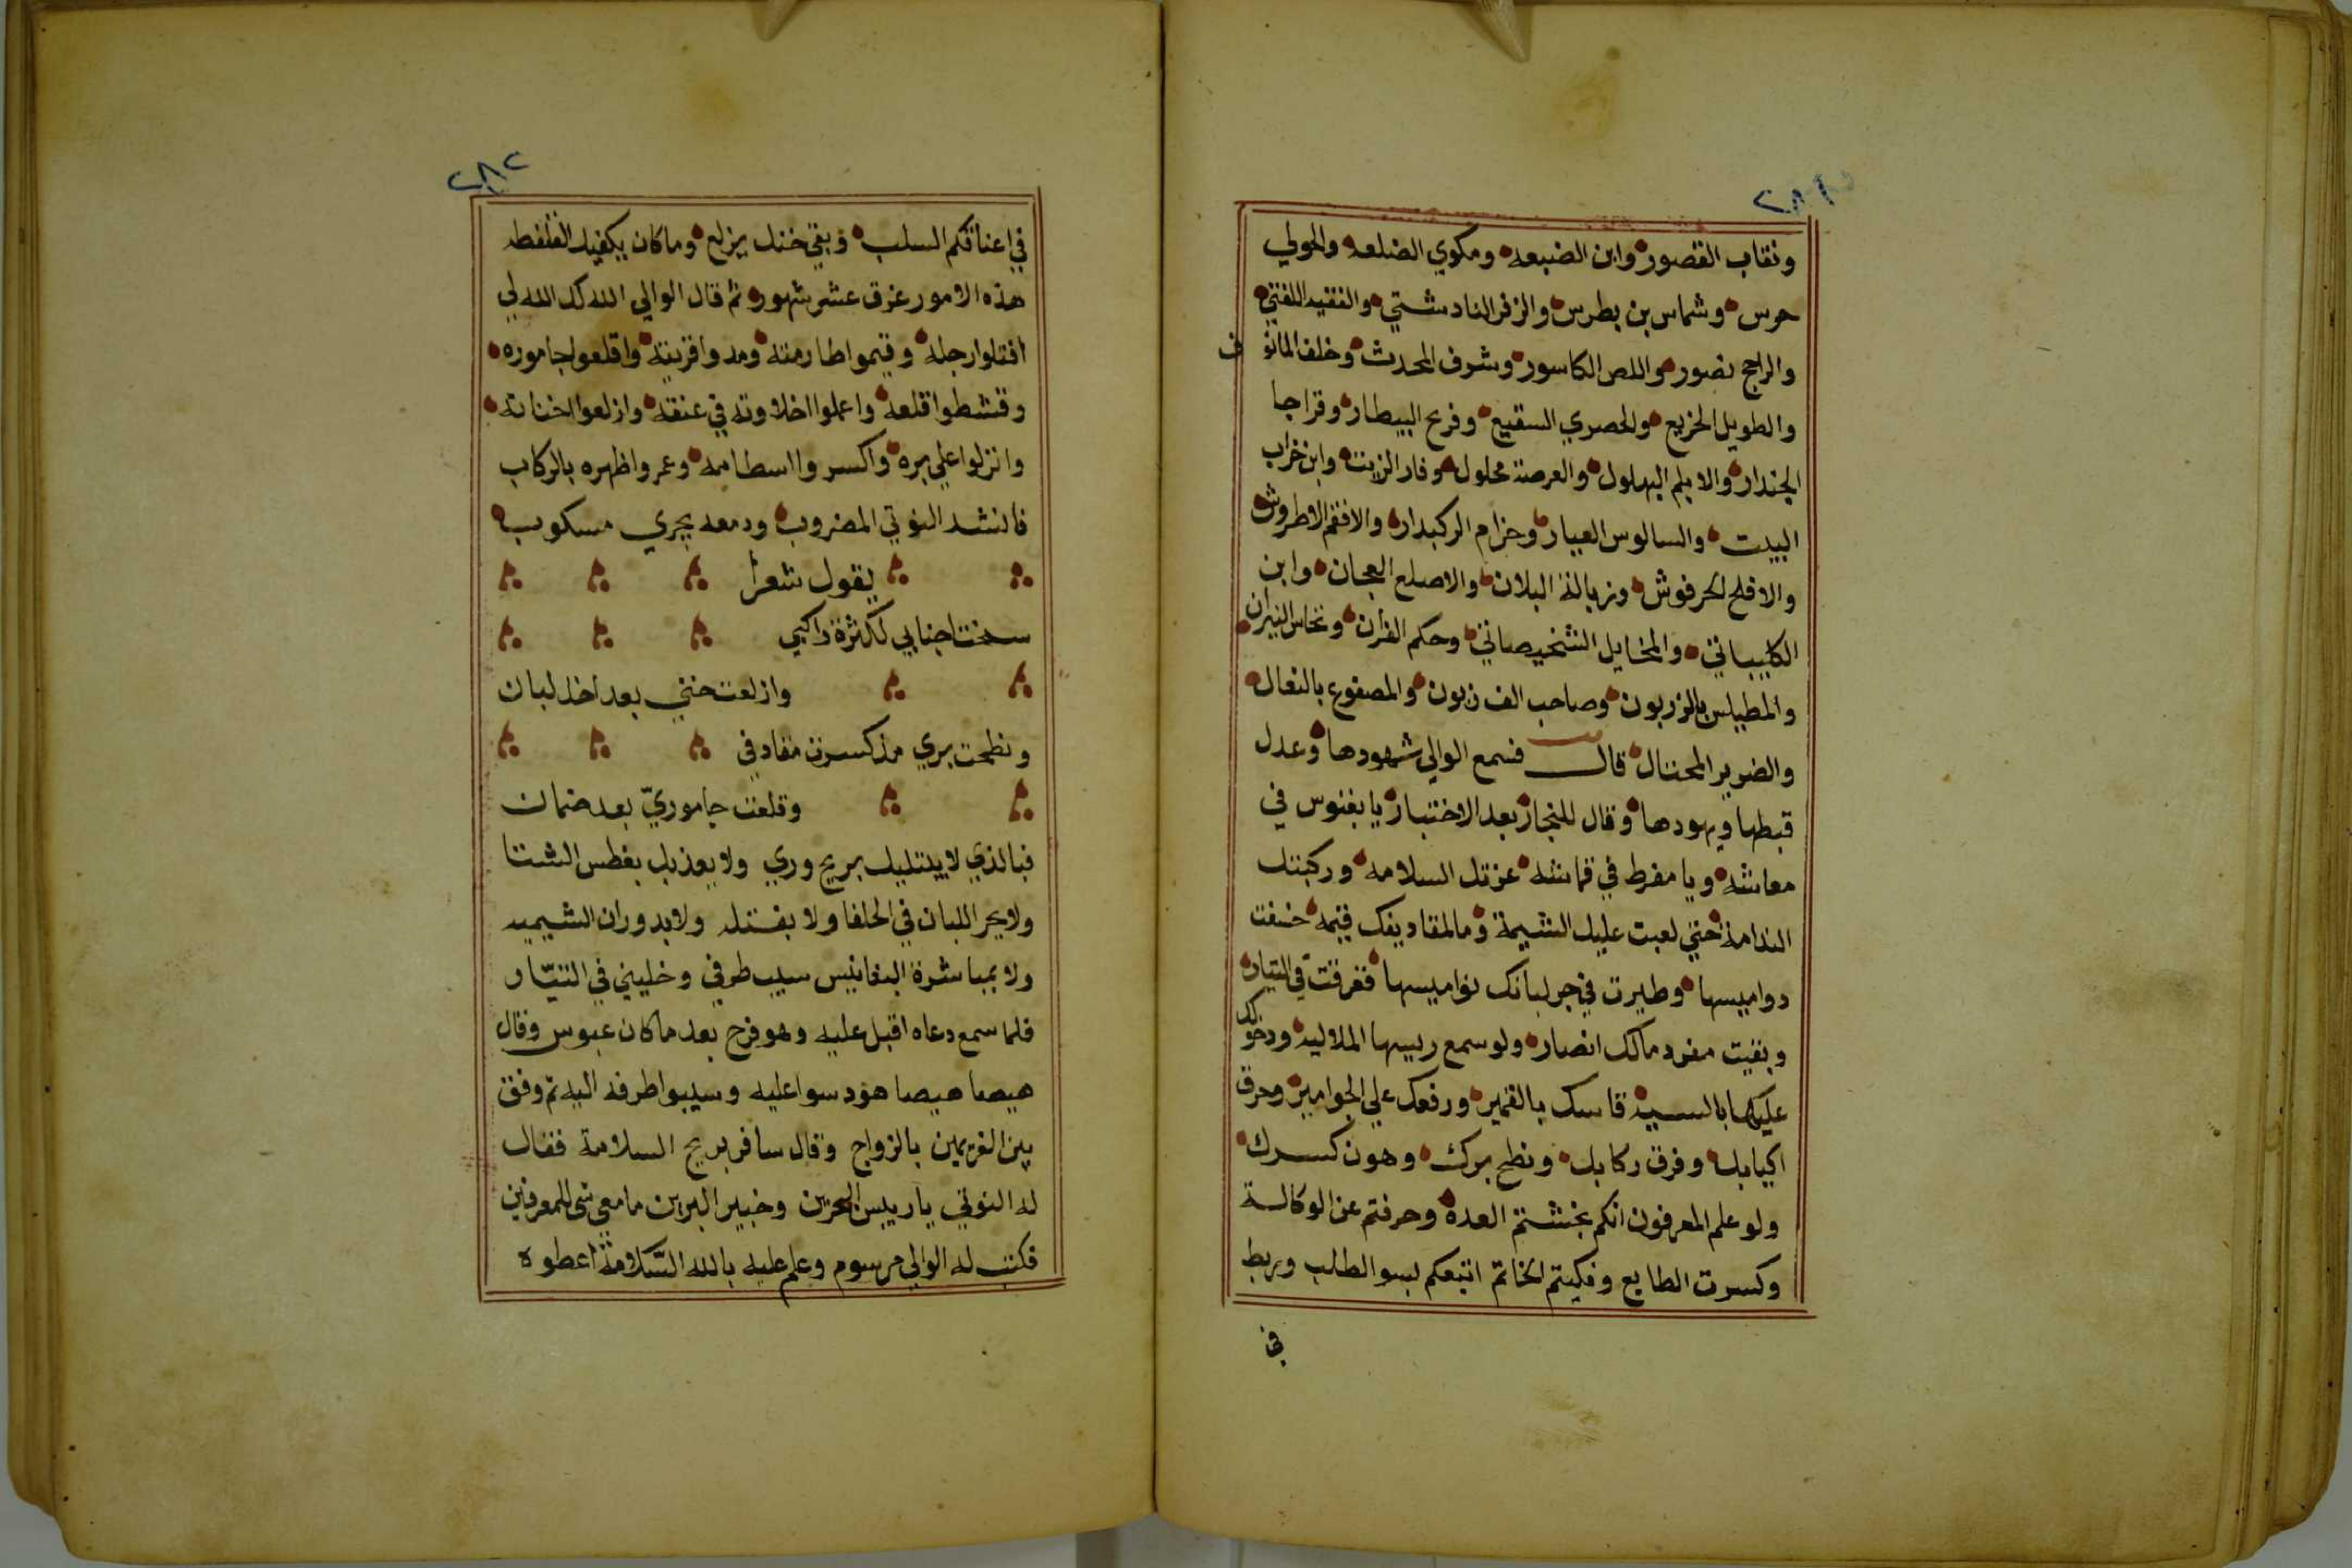 ونقاب القصور وابن الضبعه ومكوي الضلعه والمولي
حرس وشماس بن بطرس والزفر النادشتي والفقيه اللفتي
والراجح نصور واللص الكاسور وشرف المحدث وخلف المانو ف
والطويل الخزيع والحصري السقيع وفرج البيطار وقراجا
الجندار والابلم البهلول والعرصة محلول وفار الزيت وابن خراب
البيت والسالوس العيار وحزام الركبدار والافقم الاطروش
والافلح الحرفوش وزبالة البلان والاصلع العجان وابن
الكليباتي والمخايل الشخيصاتي وحكم القران ونحاس النيران
والمطيلس بالزربون وصاحب الف زبون والمصفوع بالنعال
والضرير المحتال قال فسمع الوالي شهودها وعدل
قبطها ويهودها وقال للنجار بعد الاختبار يا بغنوس في
معاشه ويا مفرط في قماشه عزتك السلامه وركبتك
الندامة حتي لعبت عليك الشيمة وما لمقاديفك قيمه خسفت
دواميسها وطيرت في جر لبانك نواميسها فغرقت في التيار
وبقيت مفرد مالك انصار ولو سمع رييسها الملاليه ودخولك
عليكها بالسيه قاسك بالقمير ورفعك علي الجوامير وحرق
اكيابك وفرق ركابك ونطح برك وهون كسرك
ولو علم المعرفون انكم بخشتم العده وحرفتم عن الوكالة
وكسرت الطابع وفكيتم الخاتم اتبعكم لسو الطلب وربط
في
٢٨٢
في اعناقكم السلب وبقي خنك يزلع وما كان يكفيك الغلفطه
هذه الامور عرق عشر شهور ثم قال الوالي الله كد الله لي
افتلوا رجله وقيموا اطارمته ومدوا قزيته واقلعوا جاموره
وقشطوا قلعه واعملوا اخلاوته في عنقه وازلعوا اخنانه
وانزلوا علي بره واكسروا اسطامه وعمروا ظهره بالركاب
فانشد النوتي المضروب ودمعه يجري مسكوب
يقول شعرا
سخنت اجنابي لكثرة راكبي
وازلعت خني بعد اخذ لبان
ونطحت بري مذ كسرت مقادفي
وقلعت جاموري بعد ضمان
فبالذي لا يبتليك بريح وري ولا يعذبك بغطس الشتا
ولا بجر اللبان في الحلفا ولا بفتله ولا بدوران الشيميه
ولا بمباشرة البغابيس سيب طرفي وخليني في التيار
فلما سمع دعاه اقبل عليه وهو فرح بعد ما كان عبوس وقال
هيصا هيصا هود سوا عليه وسيبوا طرفه اليه ثم وفق
بين الغريمين بالزواج وقال سافر بريح السلامة فقال
له النوتي يا رييس البحرين وخبير البرين ما معي شي للمعرفين
فكتب له الوالي مرسوم وعلم عليه بالله السلامة اعطوه